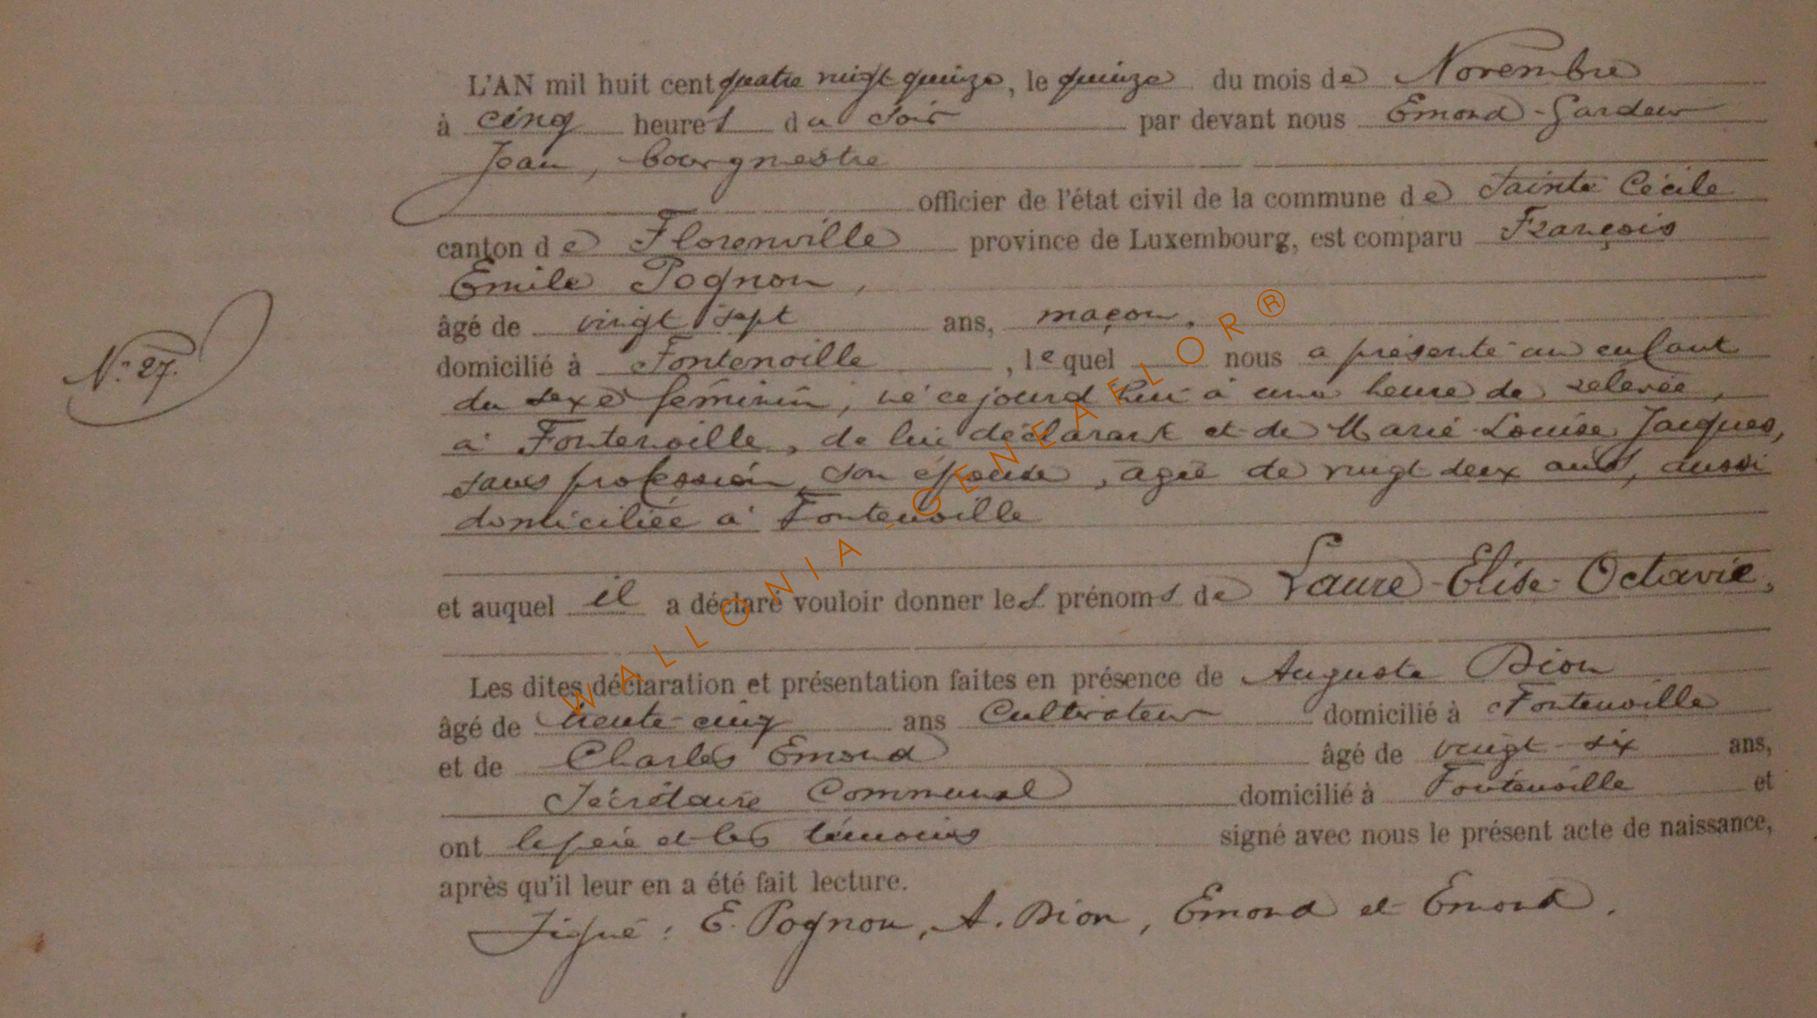 L'AN mil huit cent quatre vingt quinze, le quinze du mois de Novembre
à cinq heures du soir par devant nous Emond-Gardeur
Jean, bourgmestre
officier de l'état civil de la commune de Sainte Cécile
canton de Florenville province de Luxembourg, est comparu François
Emile Pognon,
âgé de vingt sept ans, maçon,
N° 27.
domicilié à Fontenoille, lequel nous a présenté un enfant
du sexe féminin, né ce jourd'hui à une heure de relevée,
à Fontenoille, de lui déclarant et de Marie-Louise Jacques,
sans profession, son épouse, agée de vingt deux ans, aussi
domiciliée à Fontenoille
et auquel il a déclaré vouloir donner les prénoms de Laure-Elise-Octavie,
Les dites déclaration et présentation faites en présence de Auguste Dion
âgé de trente-cinq ans Cultivateur domicilié à Fontenoille
et de Charles Emond âgé de vingt-six ans,
Sécrétaire Communal domicilié à Fontenoille et
ont le père et les témoins signé avec nous le présent acte de naissance,
après qu'il leur en a été fait lecture.
Signé : E. Pognon, A. Dion, Emond et Emond.
WALLONIA-GENEAFLOR®